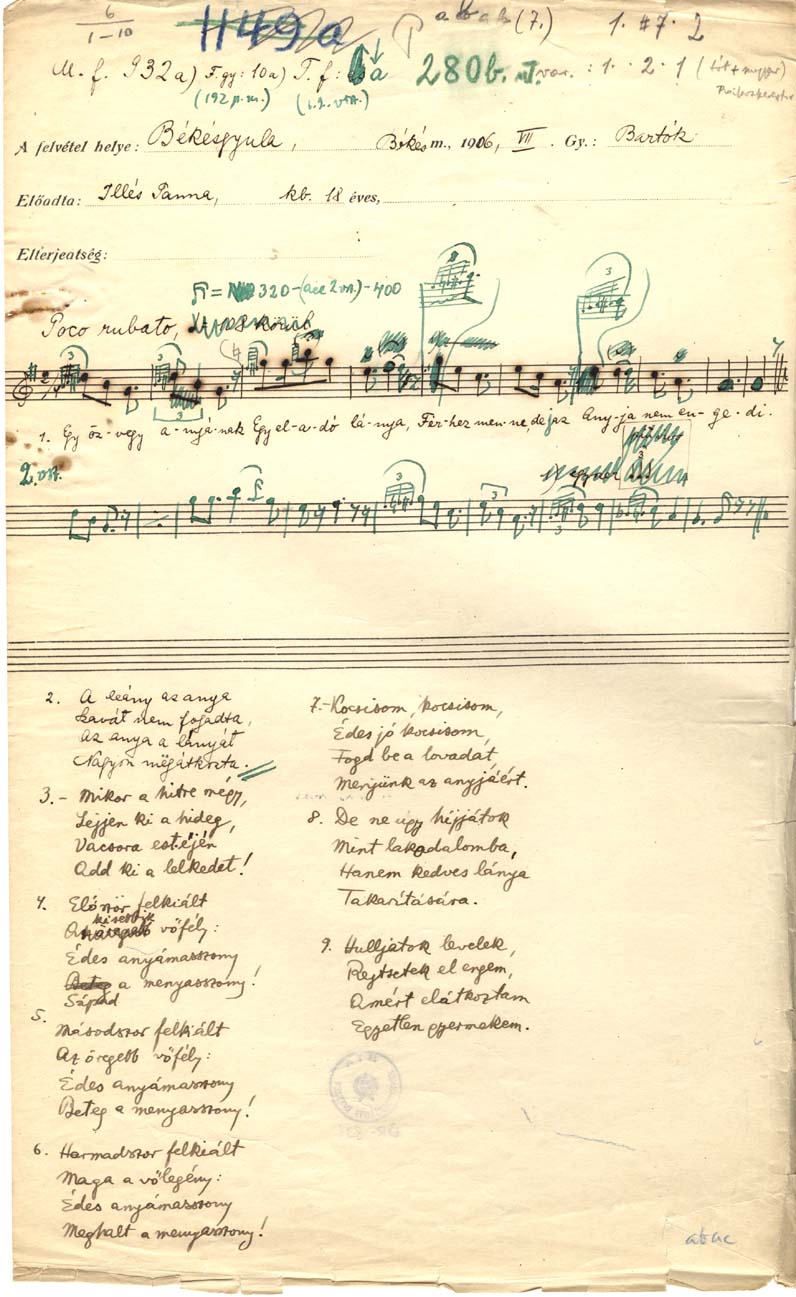 6
1–10
1149a
abab (7.)
1. #7. 2
M. f. 932a) F. gy: 10a) T. f: a
280b.
var. : 1. 2. 1 ( tót + magyar )
(192 p.m.) (1. 2. vsz.)
A felvétel helye: Békésgyula, Békés m., 1906, VII. Gy.: Bartók
Előadta: Illés Panna, kb. 18 éves,
Elterjeatség:
320-(acc 2 vsz.)-400
Poco rubato,
3
3
3
1. Egy öz-vegy a-nya-nak Egy el-a-dó lá-nya, Fér-hez men-ne, de jaz Any-ja nem en-ge-di.
2. vsz.
3
3
3
2. A leány az anya
Szavát nem fogadta,
Az anya a lányát
Nagyon mëgátkozta.
3.- Mikor a hitre mégy,
Lejjen ki a hideg,
Vacsora estéjén
Add ki a lelkedet!
4. Először felkiált
kisebbik
vőfély:
Édes anyámasszony
Beteg a menyasszony!
Sápad
5.
Másodszor felkiált
Az öregebb vőfély:
Édes anyámasszony
Beteg a menyasszony!
6. Harmadszor felkiált
Maga a vőlegény:
Édes anyámasszony
Meghalt a menyasszony!
7.- Kocsisom, kocsisom,
Édes jó kocsisom,
Fogd be a lovadat,
Menjünk az anyjáért.
8. De ne úgy híjjátok
Mint lakodalomba,
Hanem kedves lánya
Takarítására.
9. Hulljatok levelek,
Rejtsetek el engem,
Amért elátkoztam
Egyetlen gyermekem.
abac